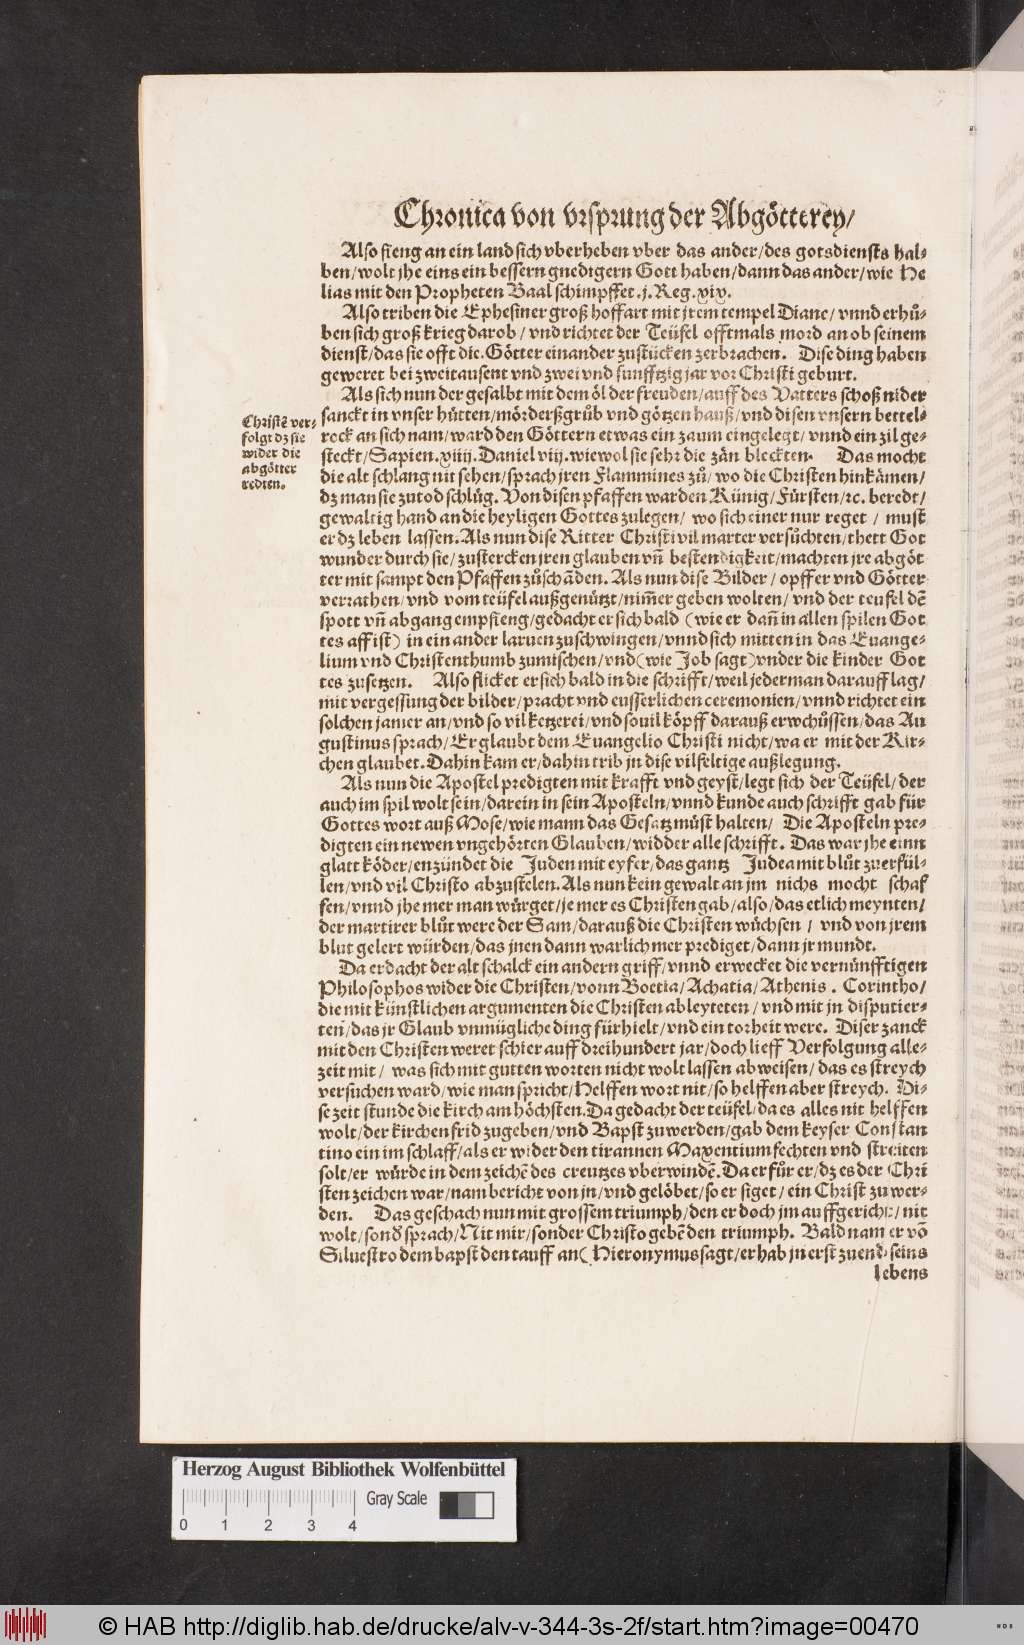 Chronica von vrsprung der Abgötterey/
Also fieng an ein land sich vberheben vber das ander/des gotsdiensts hal-
ben/wolt jhe eins ein bessern gnedigern Gott haben/dann das ander/wie He
lias mit den Propheten Baal schimpffet.j.Reg.xix.
Also triben die Ephesiner groß hoffart mit jrem tempel Diane/vnnd erhů-
ben sich groß krieg darob/vnd richtet der Teüfel offtmals mord an ob seinem
dienst/das sie offt die Götter einander zustücken zerbrachen. Dise ding haben
geweret bei zweitausent vnd zwei vnd funfftzig jar vor Christi geburt.
Als sich nun der gesalbt mit dem öl der freuden/auff des Vatters schoß nider
sanckt in vnser hütten/mörderßgrůb vnd götzen hauß/vnd disen vnsern bettel-
rock an sich nam/ward den Göttern etwas ein zaum eingelegt/vnnd ein zil ge-
steckt/Sapien.xiiij.Daniel viij.wiewol sie sehr die zän bleckten. Das mocht
die alt schlang nit sehen/sprach jren Flammines zů/wo die Christen hinkämen/
dz man sie zutod schlůg. Von disen pfaffen warden Künig/Fürsten/rc. beredt/
gewaltig hand an die heyligen Gottes zulegen/wo sich einer nur reget/must
er dz leben lassen. Als nun dise Ritter Christi vil marter versůchten/thett Got
wunder durch sie/zustercken jren glauben vñ bestendigkeit/machten jre abgöt
ter mit sampt den Pfaffen zůschāden. Als nun dise Bilder/opffer vnd Götter
verrathen/vnd vom teüfel außgenützt/nim̃er geben wolten/vnd der teufel dē
spott vñ abgang empfieng/gedacht er sich bald (wie er dañ in allen spilen Got
tes aff ist) in ein ander laruen zuschwingen/vnnd sich mitten in das Euange-
lium vnd Christenthumb zumischen/vnd (wie Job sagt) vnder die kinder Got
tes zusetzen. Also flicket er sich bald in die schrifft/weil jederman darauff lag/
mit vergessung der bilder/pracht vnd eusserlichen ceremonien/vnnd richtet ein
solchen jamer an/vnd so vil ketzerei/vnd souil köpff darauß erwchůssen/das Au
gustinus sprach/Er glaubt dem Euangelio Christi nicht/wa er mit der Kir-
chen glaubet. Dahin kam er/dahin trib jn dise vilfeltige außlegung.
Als nun die Apostel predigten mit krafft vnd geyst/legt sich der Teüfel/der
auch im spil wolt sein/darein in sein Aposteln/vnnd kunde auch schrifft gab für
Gottes wort auß Mose/wie mann das Gesatz můst halten/ Die Aposteln pre-
digten ein newen vngehörten Glauben/widder alle schrifft. Das war jhe einn
glatt köder/enzündet die Juden mit eyfer/das gantz Judea mit blůt zuerfül-
len/vnd vil Christo abzustelen. Als nun kein gewalt an jm nichs mocht schaf
fen/vnnd jhe mer man würget/je mer es Christen gab/also/das etlich meynten/
der martirer blůt were der Sam/darauß die Christen wůchsen/vnd von jrem
blut gelert würden/das jnen dann warlich mer prediget/dann jr mundt.
Da erdacht der alt schalck ein andern griff/vnnd erwecket die vernünfftigen
Philosophos wider die Christen/vonn Boetia/Achatia/Athenis. Corintho/
die mit künstlichen argumenten die Christen ableyteten/vnd mit jn disputier-
ten/das jr Glaub vnmügliche ding fürhielt/vnd ein torheit were. Diser zanck
mit den Christen weret schier auff dreihundert jar/doch lieff Verfolgung alle-
zeit mit/was sich mit gutten worten nicht wolt lassen abweisen/das es streych
versuchen ward/wie man spricht/Helffen wort nit/so helffen aber streych. Di-
se zeit stunde die kirch am höchsten. Da gedacht der teüfel/da es alles nit helffen
wolt/der kirchen frid zugeben/vnd Bapst zuwerden/gab dem keyser Constan
tino ein im schlaff/als er wider den tirannen Maxentium fechten vnd streiten
solt/er würde in dem zeichē des creutzes vberwindē. Da er fůr er/dz es der Chri
sten zeichen war/nam bericht von jn/vnd gelöbet/so er siget/ein Christ zuwer-
den. Das geschach nun mit grossem triumph/den er doch jm auffgericht/nit
wolt/sonď sprach/Nit mir/sonder Christo gebē den triumph. Bald nam er vō
Siluestro dem bapst den tauff an (Hieronymus sagt/er hab jn erst zu end seins
lebens
Christē ver-
folgt dz sie
wider die
abgötter
redten.
Herzog August Bibliothek Wolfenbüttel
Gray Scale
0 1 2 3 4
© HAB http://diglib.hab.de/drucke/alv-v-344-3s-2f/start.htm?image=00470